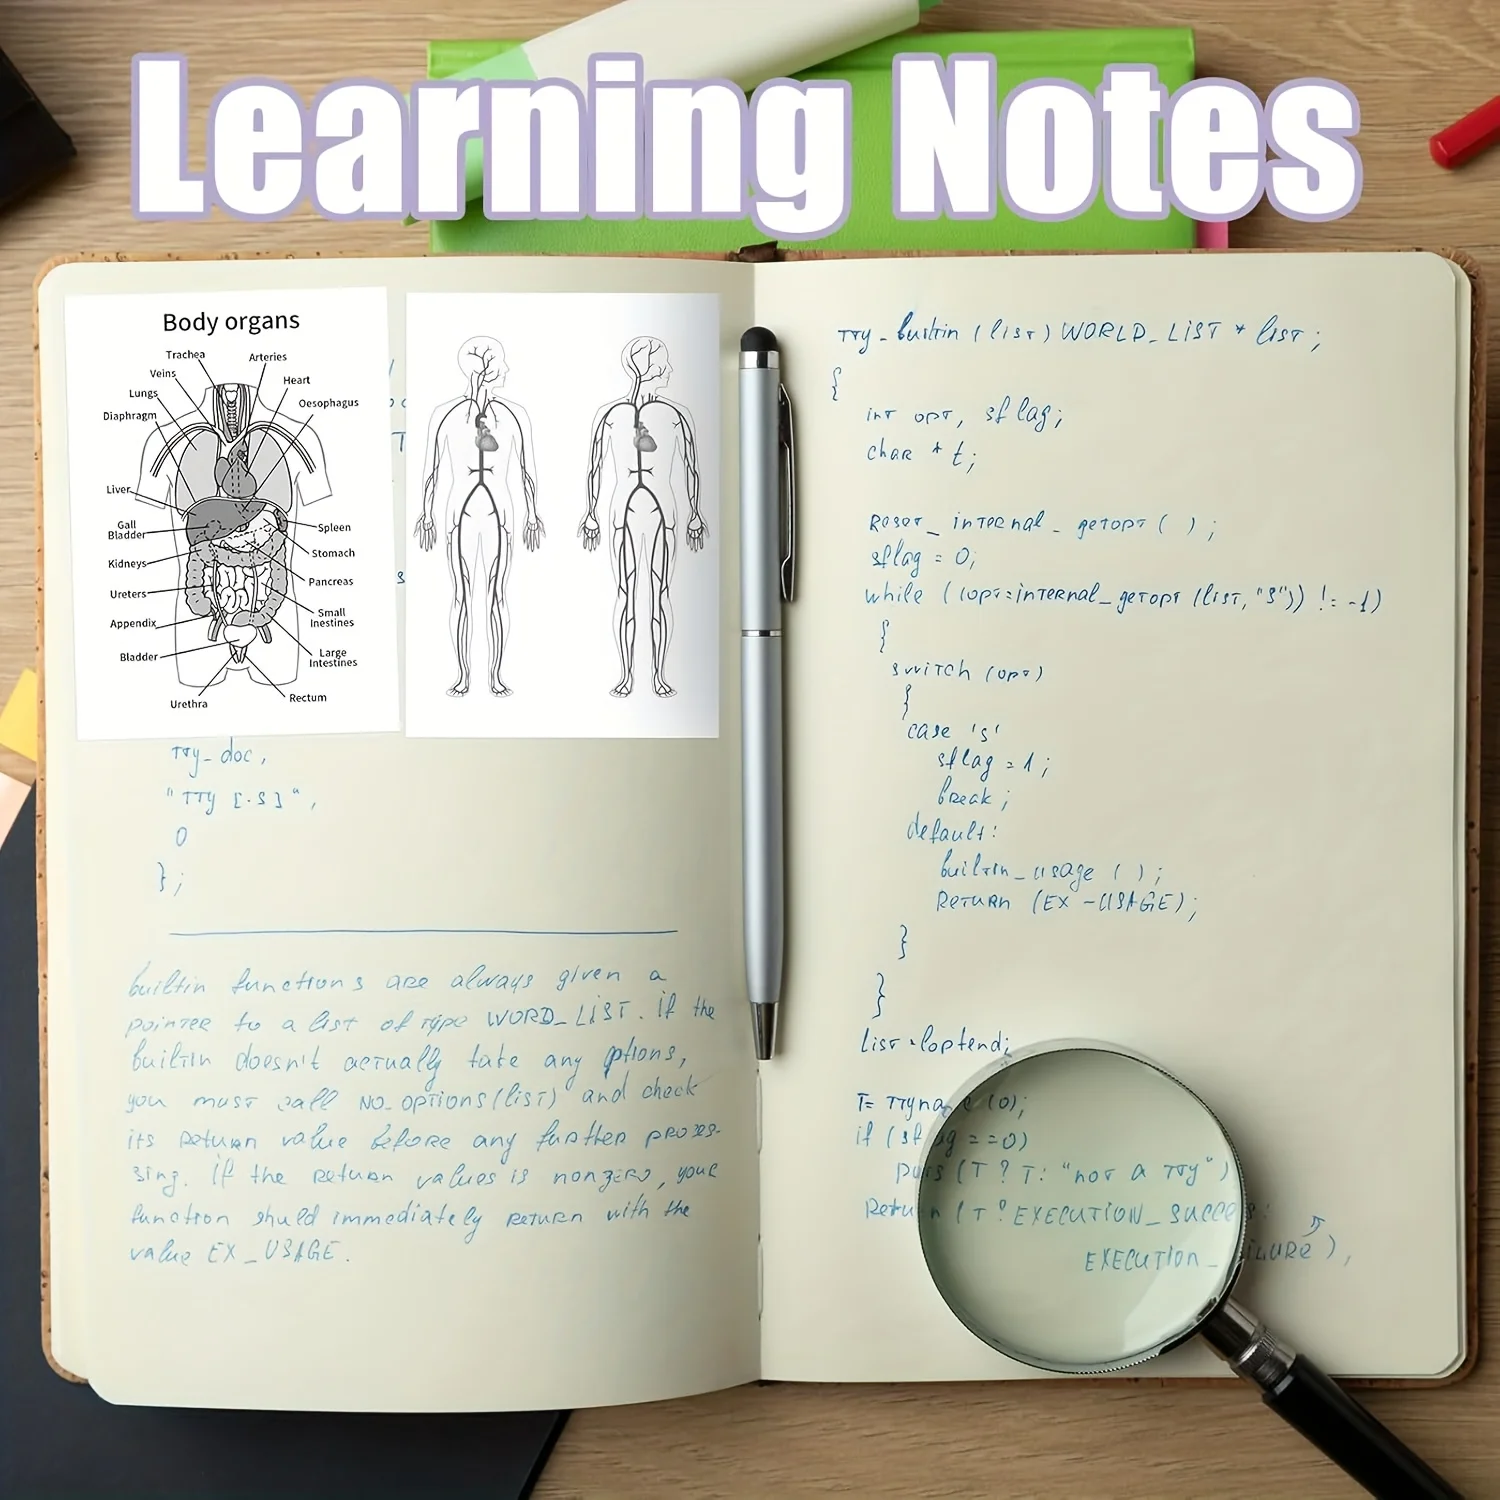 Learning Notes
Body organs
Trachea
Arteries
Veins
Heart
Lungs
Oesophagus
Diaphragm
Liver
Gall
Bladder
Spleen
Stomach
Kidneys
Pancreas
Ureters
Small
Inestines
Appendix
Large
Intestines
Bladder
Urethra
Rectum
TTy_doc,
"TTy [-S]",
0
};
builtin functions are always given a
pointer to a list of type WORD_LIST. if the
builtin doesn't actually take any options,
you must call NO_OPTIONS(list) and check
its Return value before any further proces-
sing. if the return values is nonzero, your
function shuld immediately return with the
value EX_USAGE.
TTy_builtin (list) WORLD_LIST * list;
{
int opt, sflag;
char * t;
Reset_internal_getopt ( );
sflag = 0;
while ((opt=internal_getopt (list, "S")) != -1)
{
switch (opt)
{
case 's'
sflag = 1;
break;
default:
builtin_usage ( );
Return (EX-USAGE);
}
}
}
list = loptend;
T= TTyname (0);
if (sflag ==0)
puts (T ? T: "not a TTy")
Return (T ? EXECUTION_SUCCESS:
EXECUTION_FAILURE),